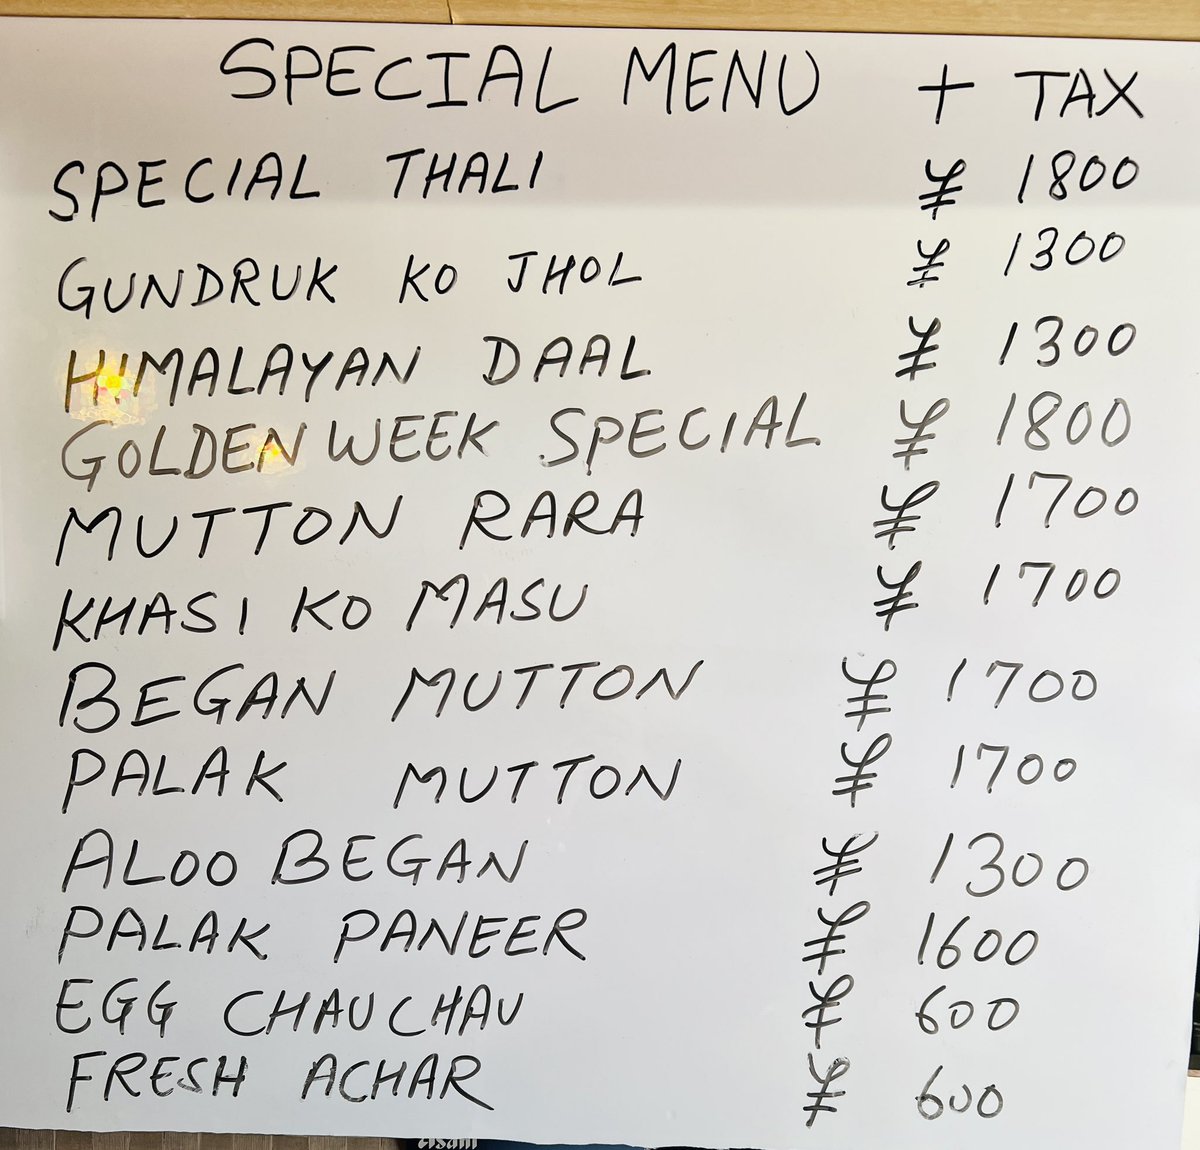 SPECIAL MENU + TAX
SPECIAL THALI ¥ 1800
GUNDRUK KO JHOL ¥ 1300
HIMALAYAN DAAL ¥ 1300
GOLDEN WEEK SPECIAL ¥ 1800
MUTTON RARA ¥ 1700
KHASI KO MASU ¥ 1700
BEGAN MUTTON ¥ 1700
PALAK MUTTON ¥ 1700
ALOO BEGAN ¥ 1300
PALAK PANEER ¥ 1600
EGG CHAUCHAU ¥ 600
FRESH ACHAR ¥ 600